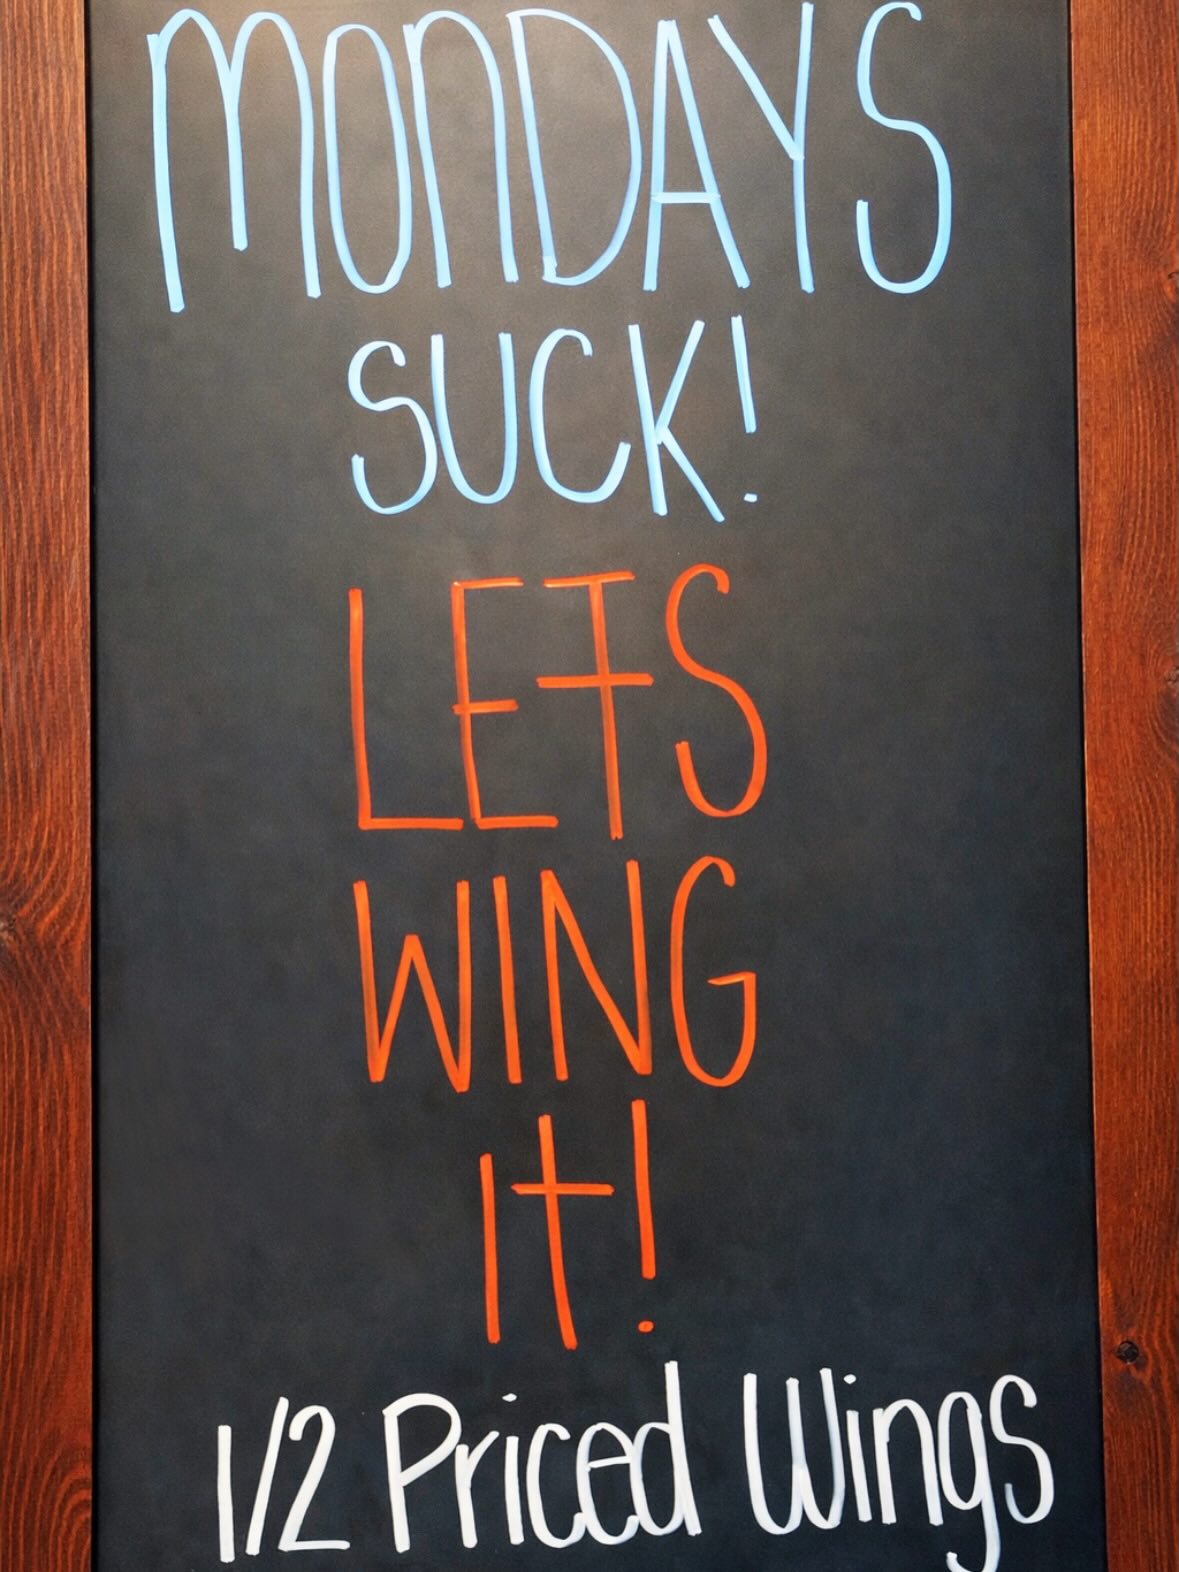 MONDAYS
SUCK!
LETS
WING
It!
1/2 Priced Wings